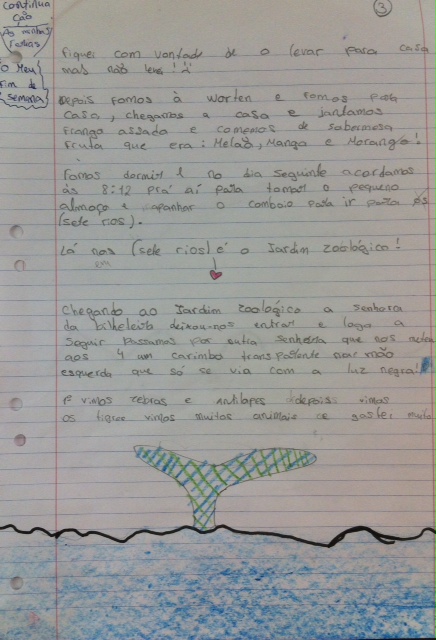 Continua
ção
As minhas
Férias
O Meu
Fim de
Semana
3
Fiquei com vontade de o levar para casa
mas não levei!
Depois fomos à worten e fomos para
casa, chegamos a casa e jantamos
Frango assado e comemos de sobremesa
Fruta que era: Melão, Manga e Morango!
Fomos dormir e no dia seguinte acordamos
às 8:12 prá aí para tomar o pequeno
almoço e apanhar o comboio para ir para ós
(sete rios).
Lá nos (sete rios) é o Jardim zoológico!
em
Chegando ao Jardim zoológico a senhora
da bilheteira deixou-nos entrar e logo a
seguir passamos por outra senhora que nos
aos 4 um carimbo transparente mão
esquerda que só se via com a luz negra!
vimos zebras e antilopes depois vimos
os tigres vimos muitos animais e gostei muito